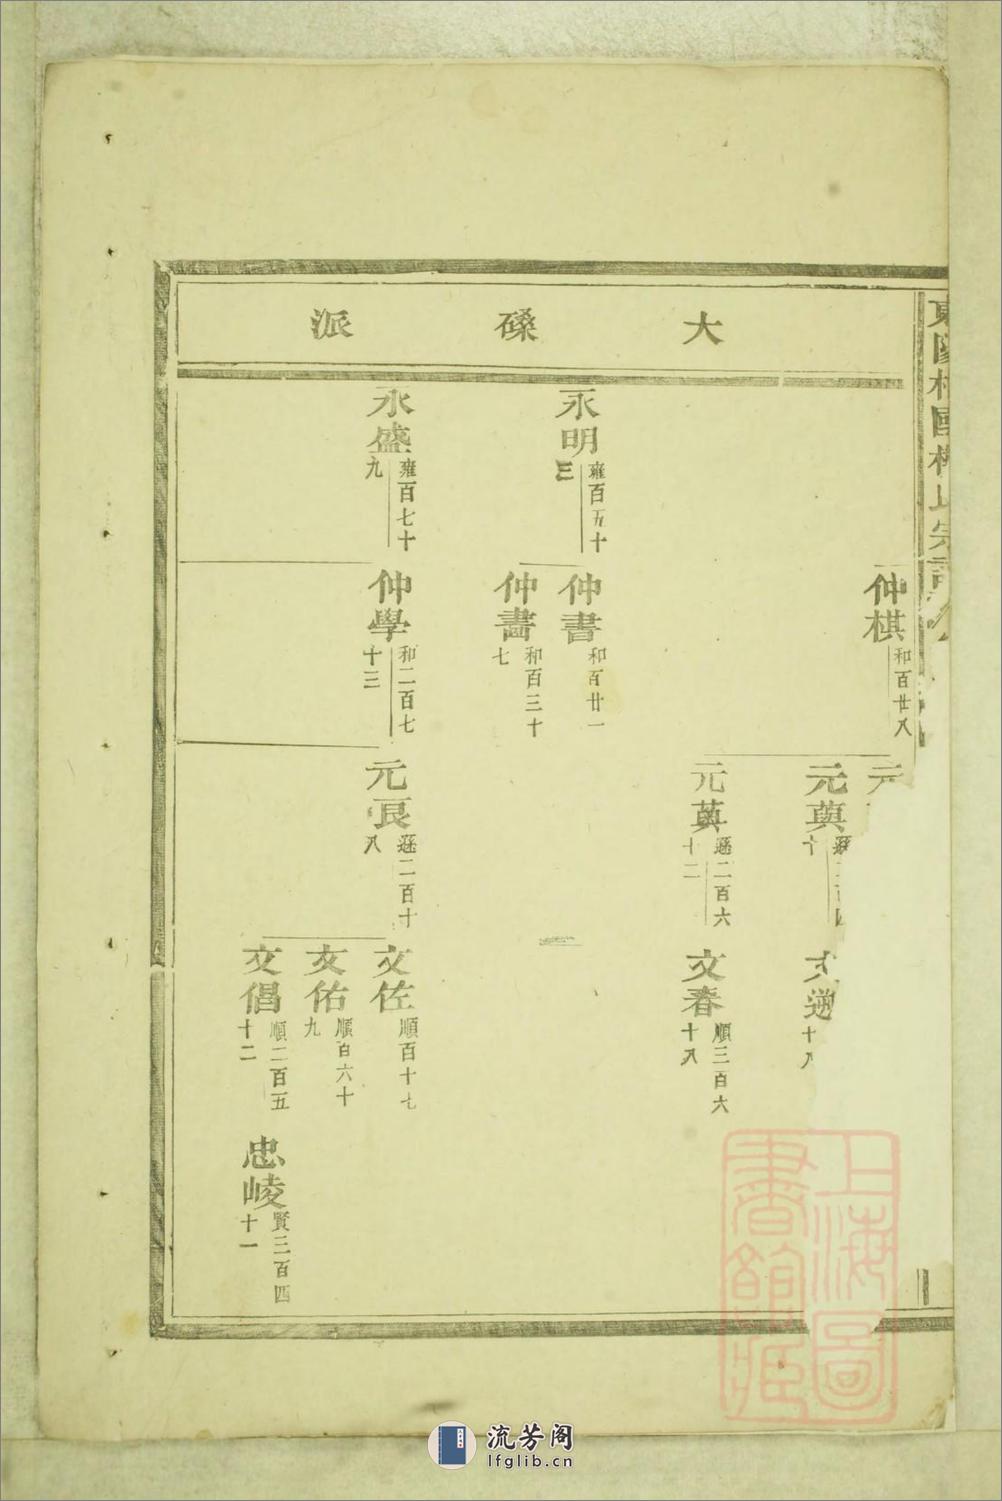 大磉派
仲棋
和百廿八
元
元䓿
十
文
十八
元英
遜二百六
十二
文春
順三百六
十八
永明
雍百五十
三
仲書
和百廿一
仲畵
和百三十
七
永盛
雍百七十
九
仲學
和二百七
十三
元良
遜二百十
八
文佐
順百十七
文佑
順百六十
九
文倡
順二百五
十二
忠崚
賢三百四
十一
上海圖
書館藏
流芳阁
lfglib.cn